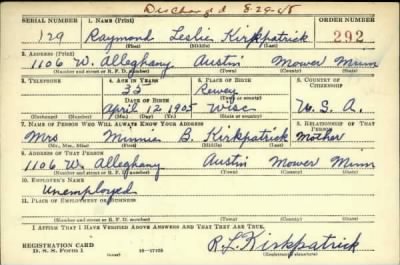 Discharged 8-29-45
SERIAL NUMBER 1. NAME (Print) ORDER NUMBER
129 Raymond Leslie Kirkpatrick 292
(First) (Middle) (Last)
2. ADDRESS (Print)
1106 W. Alleghany Austin Mower Minn
(Number and street or R. F. D. number) (Town) (County) (State)
3. TELEPHONE 4. AGE IN YEARS 5. PLACE OF BIRTH 6. COUNTRY OF CITIZENSHIP
35 Rewey
DATE OF BIRTH (Town or county)
April 12 1905 Wisc U. S. A.
(Exchange) (Number) (Mo.) (Day) (Yr.) (State or country)
7. NAME OF PERSON WHO WILL ALWAYS KNOW YOUR ADDRESS 8. RELATIONSHIP OF THAT PERSON
Mrs Minnie B. Kirkpatrick Mother
(Mr., Mrs., Miss) (First) (Middle) (Last)
9. ADDRESS OF THAT PERSON
1106 W. Alleghany Austin Mower Minn
(Number and street or R. F. D. number) (Town) (County) (State)
10. EMPLOYER'S NAME
Unemployed
11. PLACE OF EMPLOYMENT OR BUSINESS
(Number and street or R. F. D. number) (Town) (County) (State)
I AFFIRM THAT I HAVE VERIFIED ABOVE ANSWERS AND THAT THEY ARE TRUE.
REGISTRATION CARD
D. S. S. Form 1 R. L. Kirkpatrick
(Registrant's signature)